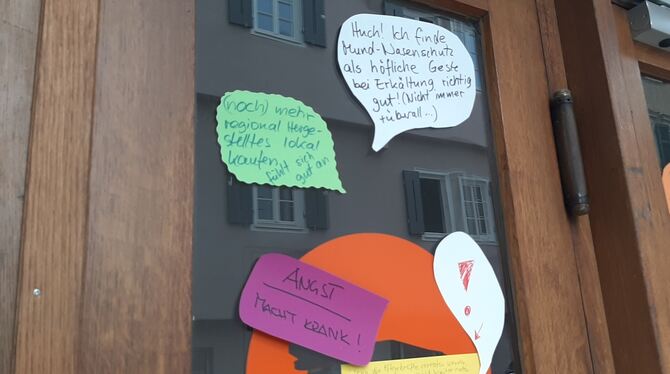 Huch! Ich finde
Mund-Nasenschutz
als höfliche Geste
bei Erkältung richtig
gut! (Nicht immer
+ überall...)
(noch) mehr
regional Herge-
stelltes lokal
kaufen
fühlt sich
gut an
ANGST
MACHT KRANK!